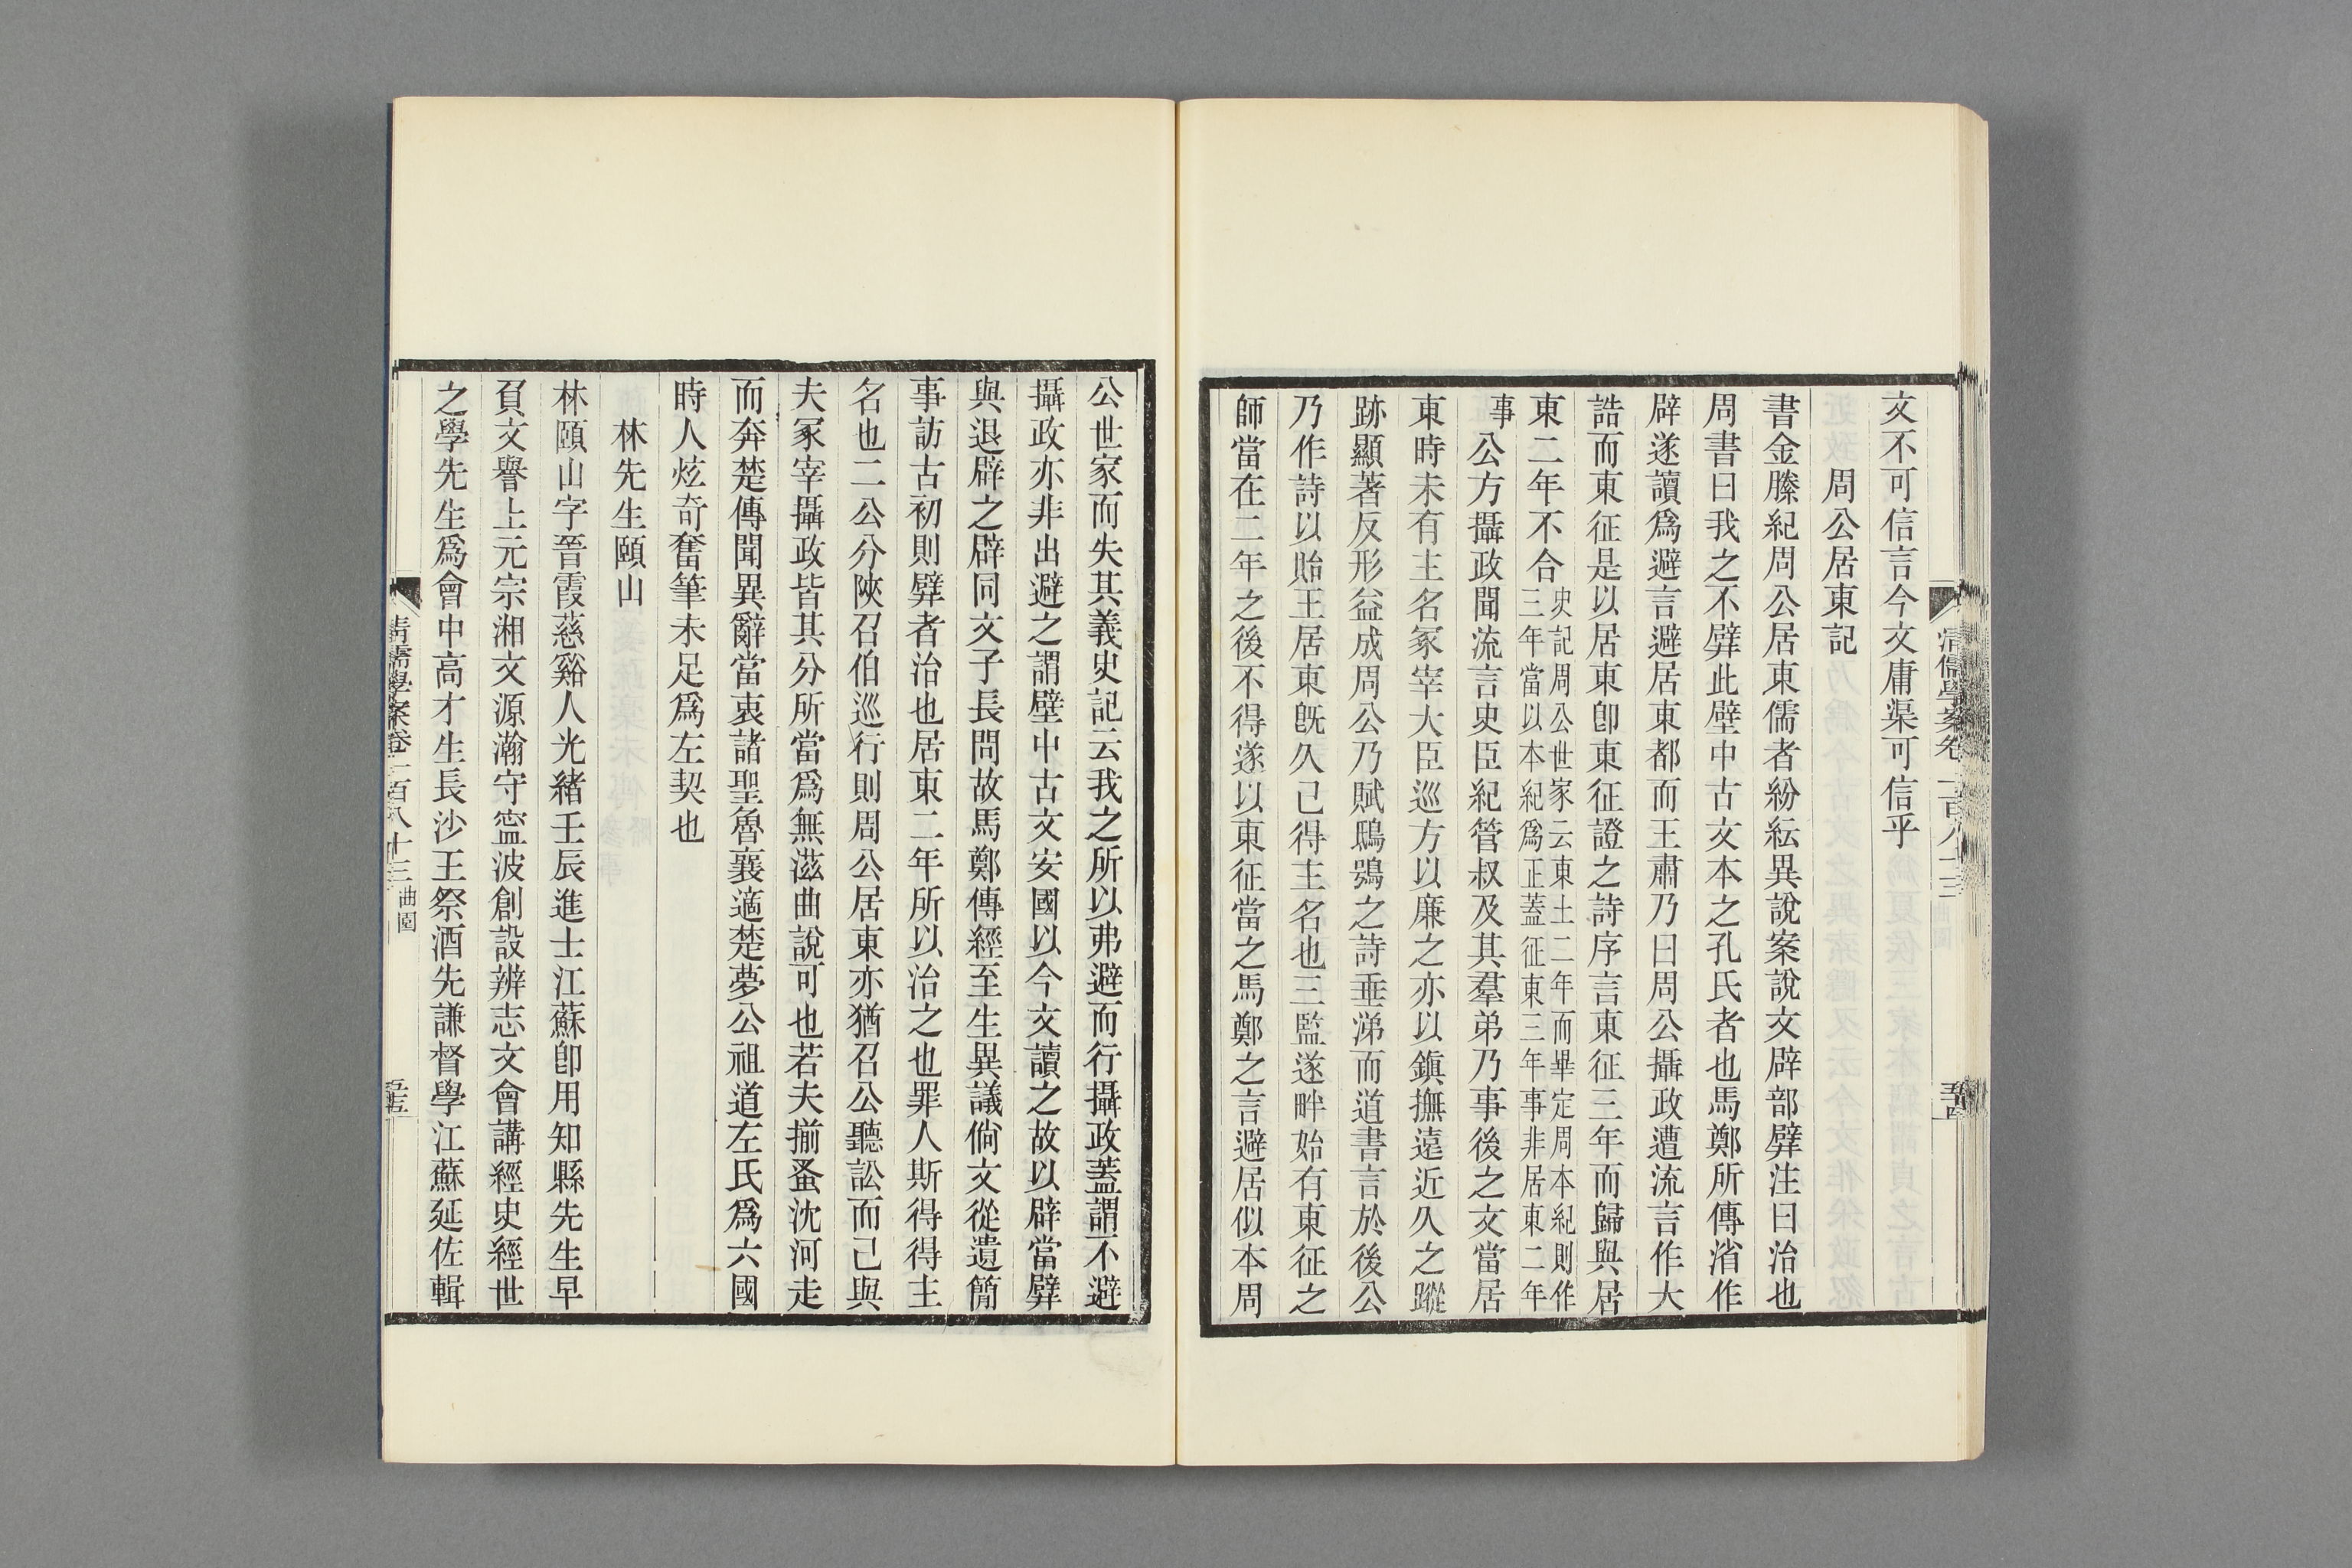 文不可信言今文庸渠可信乎
周公居東記
書金縢紀周公居東儒者紛紜異說案說文辟部㘷注曰治也
周書曰我之不㘷此壁中古文本之孔氏者也馬鄭所傳渻作
辟遂讀爲避言避居東都而王肅乃曰周公攝政遭流言作大
誥而東征是以居東卽東征證之詩序言東征三年而歸與居
東二年不合史記周公世家云東土二年而畢定周本紀則作三年當以本紀爲正蓋征東三年事非居東二年
事公方攝政聞流言史臣紀管叔及其羣弟乃事後之文當居
東時未有主名冢宰大臣巡方以廉之亦以鎮撫遠近久之蹤
跡顯著反形益成周公乃賦鴟鴞之詩垂涕而道書言於後公
乃作詩以貽王居東既久己得主名也三監遂畔始有東征之
師當在二年之後不得遂以東征當之馬鄭之言避居似本周
清儒學案卷一百八十三
五十四
公世家而失其義史記云我之所以弗避而行攝政蓋謂不避
攝政亦非出避之謂壁中古文安國以今文讀之故以辟當㘷
與退辟之辟同文子長問故馬鄭傳經至生異議倘文從遺簡
事訪古初則㘷者治也居東二年所以治之也罪人斯得得主
名也二公分陜召伯巡行則周公居東亦猶召公聽訟而己與
夫冢宰攝政皆其分所當爲無滋曲說可也若夫揃蚤沈河走
而奔楚傳聞異辭當衷諸聖魯襄適楚夢公祖道左氏爲六國
時人炫奇奮筆未足爲左契也
林先生頤山
林頤山字晉霞慈谿人光緒壬辰進士江蘇卽用知縣先生早
負文譽上元宗湘文源瀚守寍波創設辨志文會講經史經世
之學先生爲會中高才生長沙王祭酒先謙督學江蘇延佐輯
清儒學案卷一百八十三 曲園
五十五